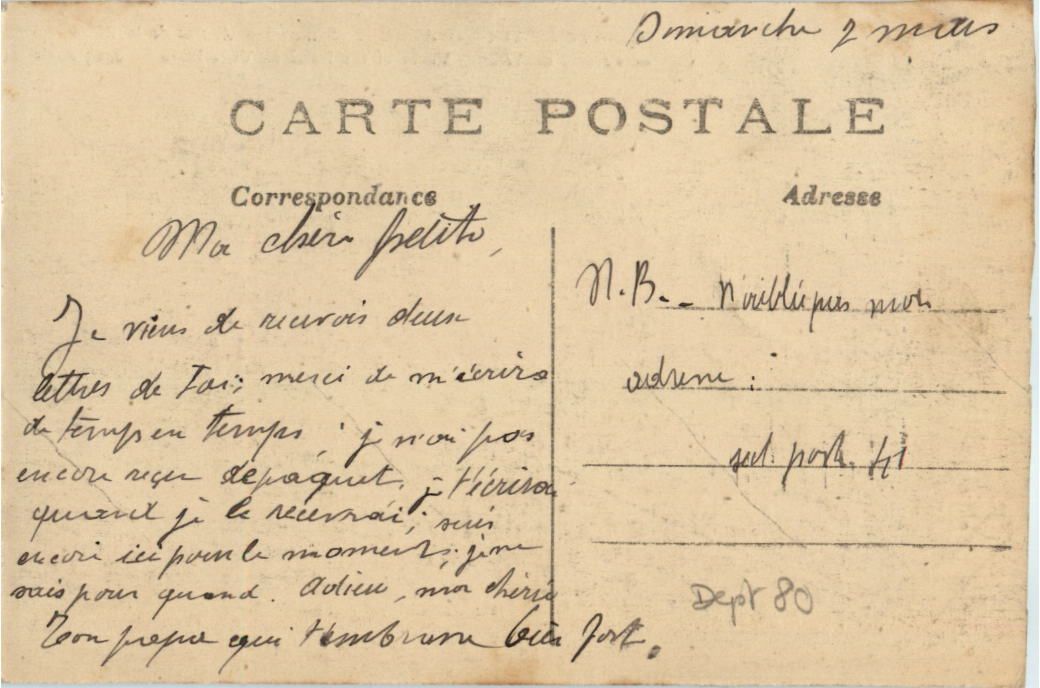 Dimanche 7 mars
CARTE POSTALE
Correspondance
Adresse
Ma chère petite,
Je viens de recevoir deux
lettres de Toi; merci de m'écrire
de temps en temps; je n'ai pas
encore reçu de paquet, je t'écrirai
quand je le recevrai; suis
encore ici pour le moment; je ne
sais pour quand. Adieu, ma chérie
Ton papa qui t'embrasse bien fort.
N.B. - N'oublie pas mon
adresse :
sect. post. 41
Dept 80